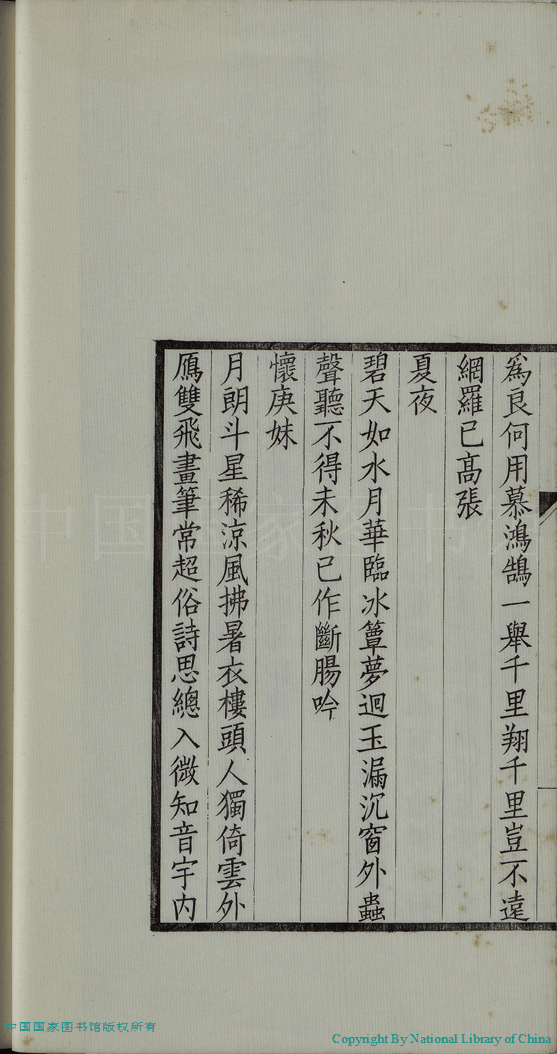 爲良何用慕鴻鵠一舉千里翔千里豈不遠
網羅已高張
夏夜
碧天如水月華臨冰簟夢迴玉漏沉窗外蟲
聲聽不得未秋已作斷腸吟
懷庚妹
月朗斗星稀涼風拂暑衣樓頭人獨倚雲外
鴈雙飛畫筆常超俗詩思總入微知音宇内
中国国家图书馆版权所有
Copyright By National Library of China